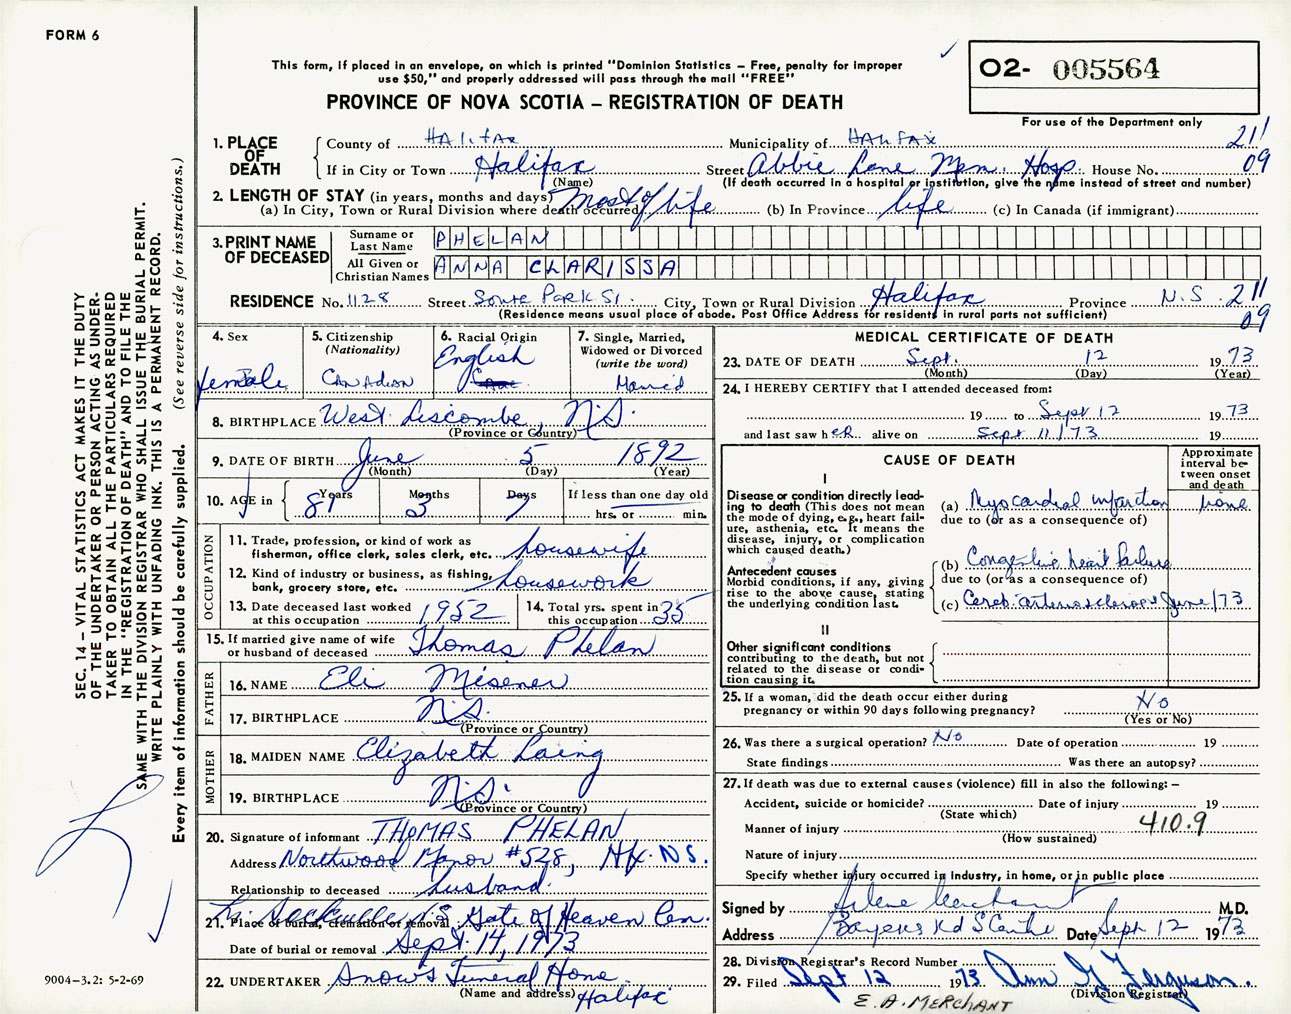 FORM 6
This form, if placed in an envelope, on which is printed "Dominion Statistics – Free, penalty for improper
use $50," and properly addressed will pass through the mail "FREE"
PROVINCE OF NOVA SCOTIA – REGISTRATION OF DEATH
02- 005564
For use of the Department only
SEC. 14 – VITAL STATISTICS ACT MAKES IT THE DUTY
OF THE UNDERTAKER OR PERSON ACTING AS UNDER-
TAKER TO OBTAIN ALL THE PARTICULARS REQUIRED
IN THE "REGISTRATION OF DEATH" AND TO FILE THE
SAME WITH THE DIVISION REGISTRAR WHO SHALL ISSUE THE BURIAL PERMIT.
WRITE PLAINLY WITH UNFADING INK. THIS IS A PERMANENT RECORD.
Every item of information should be carefully supplied. (See reverse side for instructions.)
1. PLACE OF DEATH
County of HALIFAX Municipality of HALIFAX 211
If in City or Town Halifax Street Abbie Lane Mem. Hosp. House No. 09
(Name) (If death occurred in a hospital or institution, give the name instead of street and number)
2. LENGTH OF STAY (in years, months and days)
(a) In City, Town or Rural Division where death occurred Most of life (b) In Province life (c) In Canada (if immigrant)
3. PRINT NAME OF DECEASED
Surname or Last Name PHELAN
All Given or Christian Names ANNA CLARISSA
RESIDENCE No. 1128 Street South Park St. City, Town or Rural Division Halifax Province N.S. 211
(Residence means usual place of abode. Post Office Address for residents in rural parts not sufficient) 09
4. Sex female
5. Citizenship (Nationality) Canadian
6. Racial Origin English
7. Single, Married, Widowed or Divorced (write the word) Married
8. BIRTHPLACE West Liscombe, N.S.
(Province or Country)
9. DATE OF BIRTH June 5 1892
(Month) (Day) (Year)
10. AGE in Years 81 Months 3 Days 7 If less than one day old
hrs. or min.
OCCUPATION
11. Trade, profession, or kind of work as
fisherman, office clerk, sales clerk, etc. housewife
12. Kind of industry or business, as fishing,
bank, grocery store, etc. housework
13. Date deceased last worked
at this occupation 1952
14. Total yrs. spent in
this occupation 35
15. If married give name of wife
or husband of deceased Thomas Phelan
FATHER
16. NAME Eli Misener
17. BIRTHPLACE N.S.
(Province or Country)
MOTHER
18. MAIDEN NAME Elizabeth Laing
19. BIRTHPLACE N.S.
(Province or Country)
20. Signature of informant THOMAS PHELAN
Address Northwood Manor #528, Hfx. N.S.
Relationship to deceased husband.
21. Place of burial, cremation or removal Sackville N.S. Gate of Heaven Cem.
Date of burial or removal Sept. 14, 1973
22. UNDERTAKER Snow's Funeral Home
(Name and address) Halifax
9004–3.2: 5-2-69
MEDICAL CERTIFICATE OF DEATH
23. DATE OF DEATH Sept. 12 1973
(Month) (Day) (Year)
24. I HEREBY CERTIFY that I attended deceased from:
19 to Sept 12 1973
and last saw her alive on Sept 11/73 19
CAUSE OF DEATH
Approximate
interval be-
tween onset
and death
I
Disease or condition directly lead-
ing to death (This does not mean
the mode of dying, e.g., heart fail-
ure, asthenia, etc. It means the
disease, injury, or complication
which caused death.)
(a) Myocardial infarction
due to (or as a consequence of)
Antecedent causes
Morbid conditions, if any, giving
rise to the above cause, stating
the underlying condition last.
(b) Congestive heart failure
due to (or as a consequence of)
(c) June/73
II
Other significant conditions
contributing to the death, but not
related to the disease or condi-
tion causing it.
25. If a woman, did the death occur either during
pregnancy or within 90 days following pregnancy? No
(Yes or No)
26. Was there a surgical operation? No Date of operation 19
State findings Was there an autopsy?
27. If death was due to external causes (violence) fill in also the following: –
Accident, suicide or homicide? Date of injury 19
(State which)
Manner of injury 410.9
(How sustained)
Nature of injury
Specify whether injury occurred in industry, in home, or in public place
Signed by Arlene Merchant M.D.
Address Bayers Rd S Centre Date Sept 12 1973
28. Division Registrar's Record Number
29. Filed Sept 12 1973 Ann G. Ferguson.
(Division Registrar)
E. A. MERCHANT